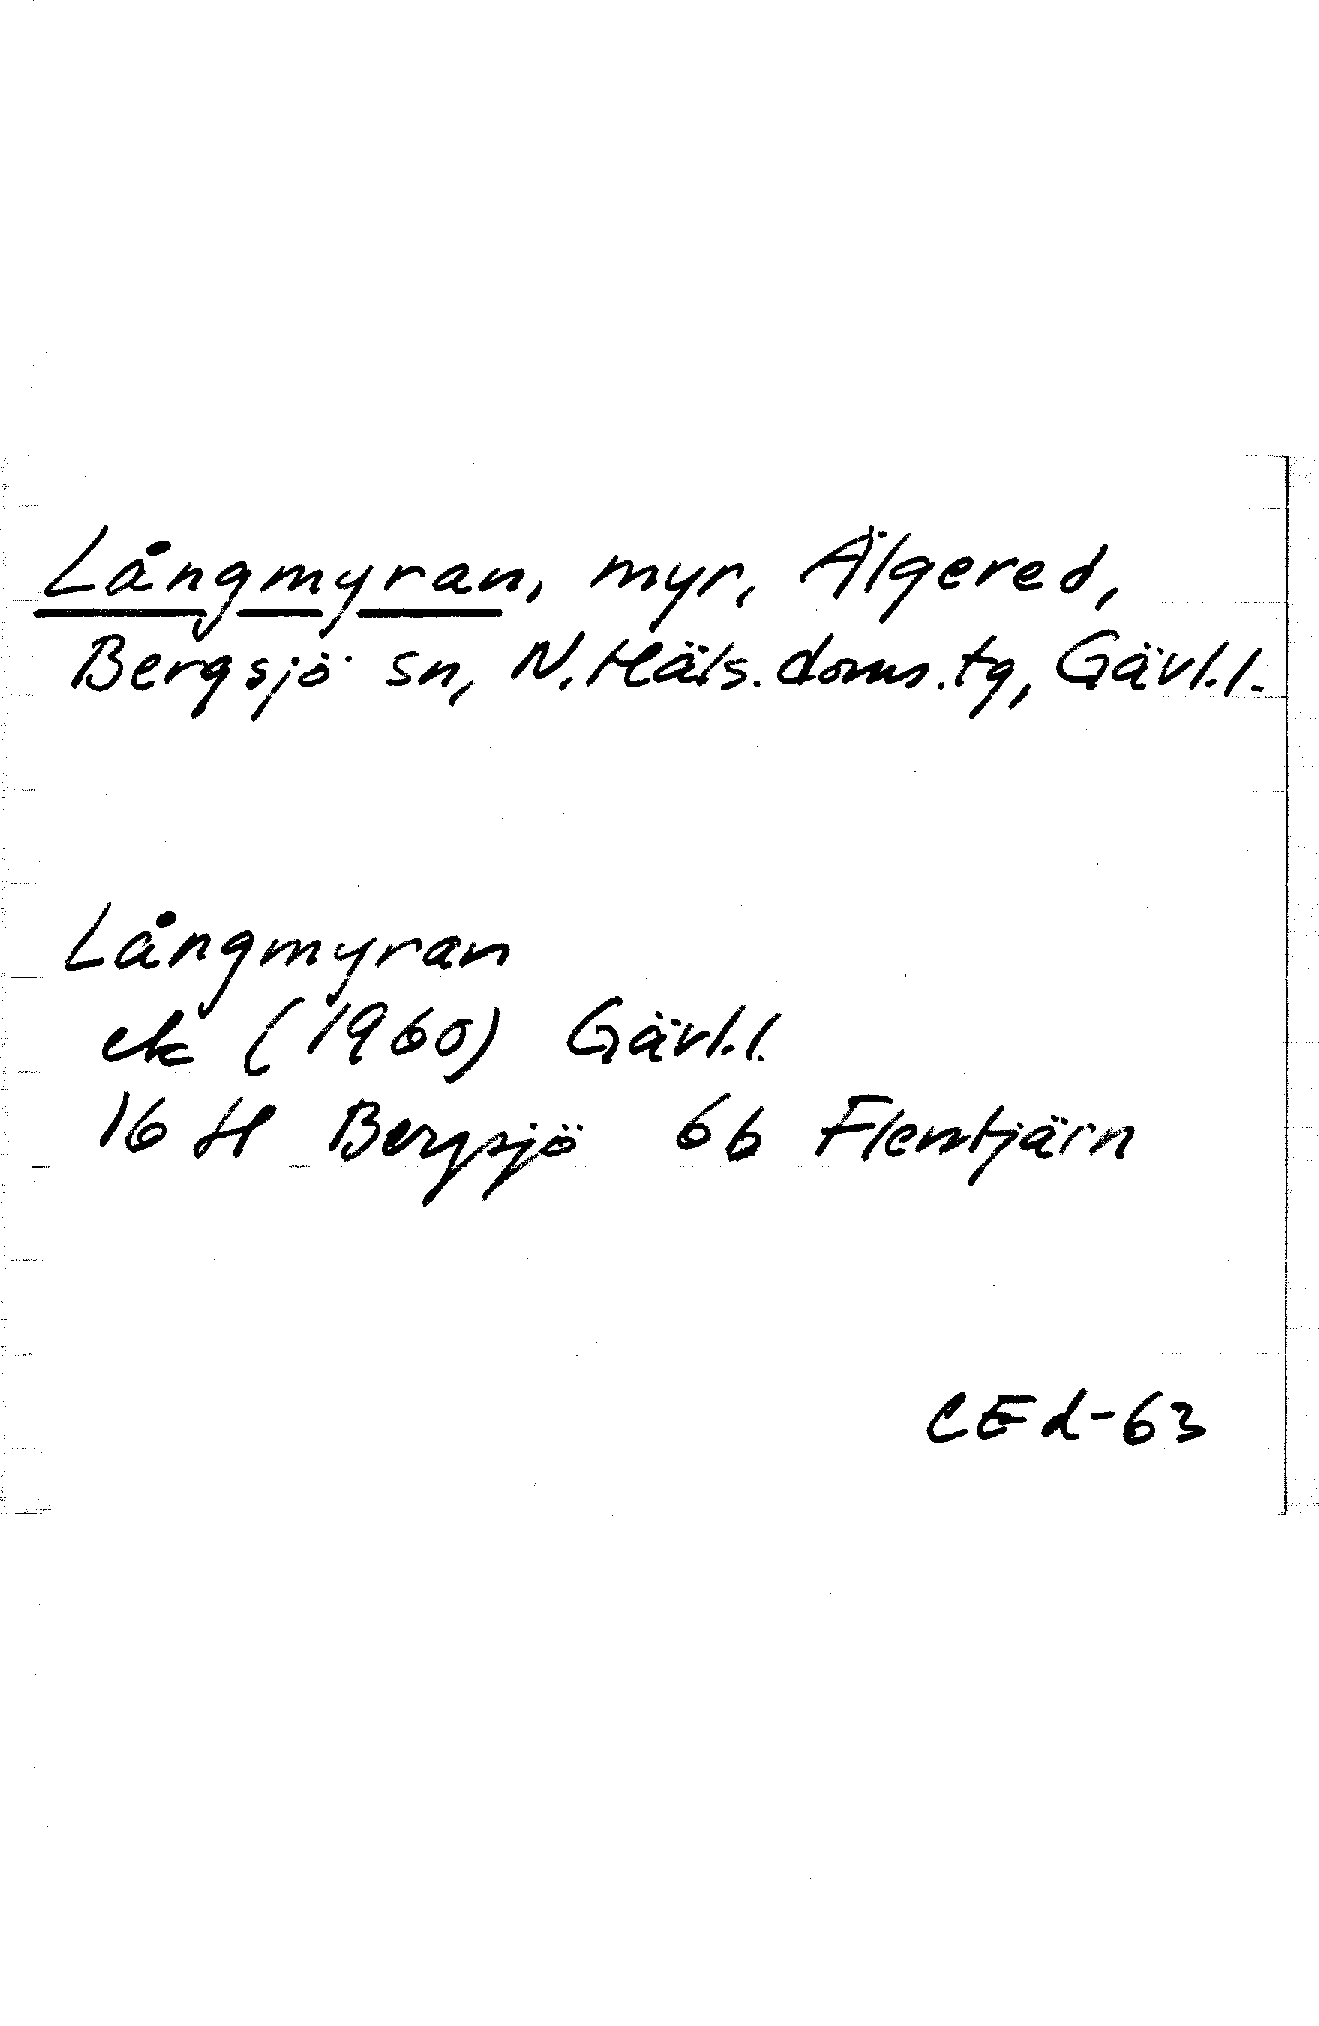 Långmyran, myr, Älgered,
Bergsjö sn, N. Häls. doms. tg, Gävl. l.
Långmyran
ek (1960) Gävl. l.
16 H Bergsjö 6b Flemtjärn
CEd-63